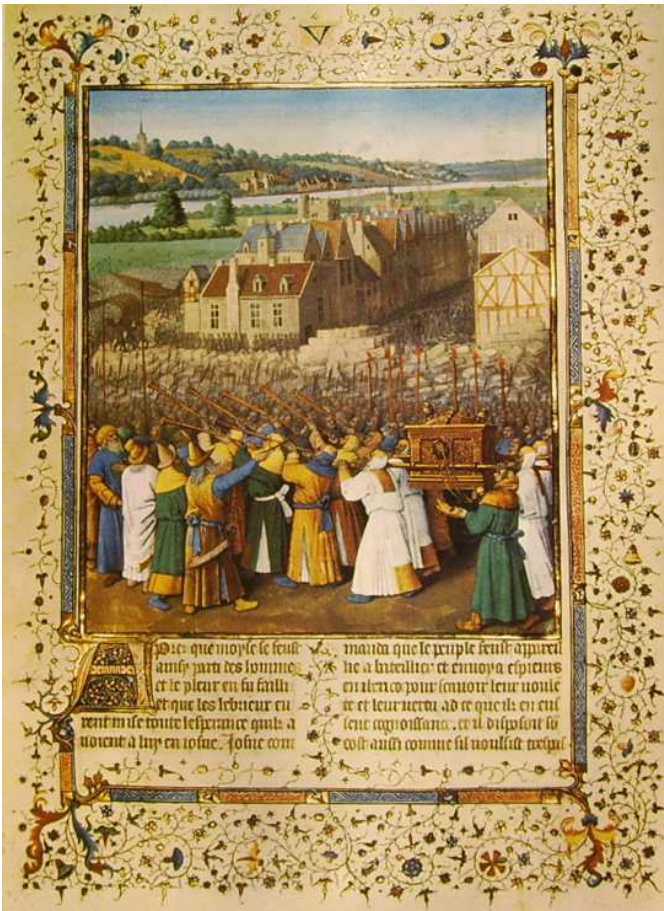 Apres que moyse se feust
ainsy parti des hommes
et le pleur en fu failli
et que les hebrieux eu
rent mise toute lesperance quilz a
uoient a luy en iosue. Iosue com
manda que le peuple feust appareil
lie a bateillier et enuoya espieurs
en iherico pour scauoir leur voule
te et leur vertu ad ce que ilz en eus
sent cognoissance. et il disposoit
cost aussi comme sil voulsist trespas